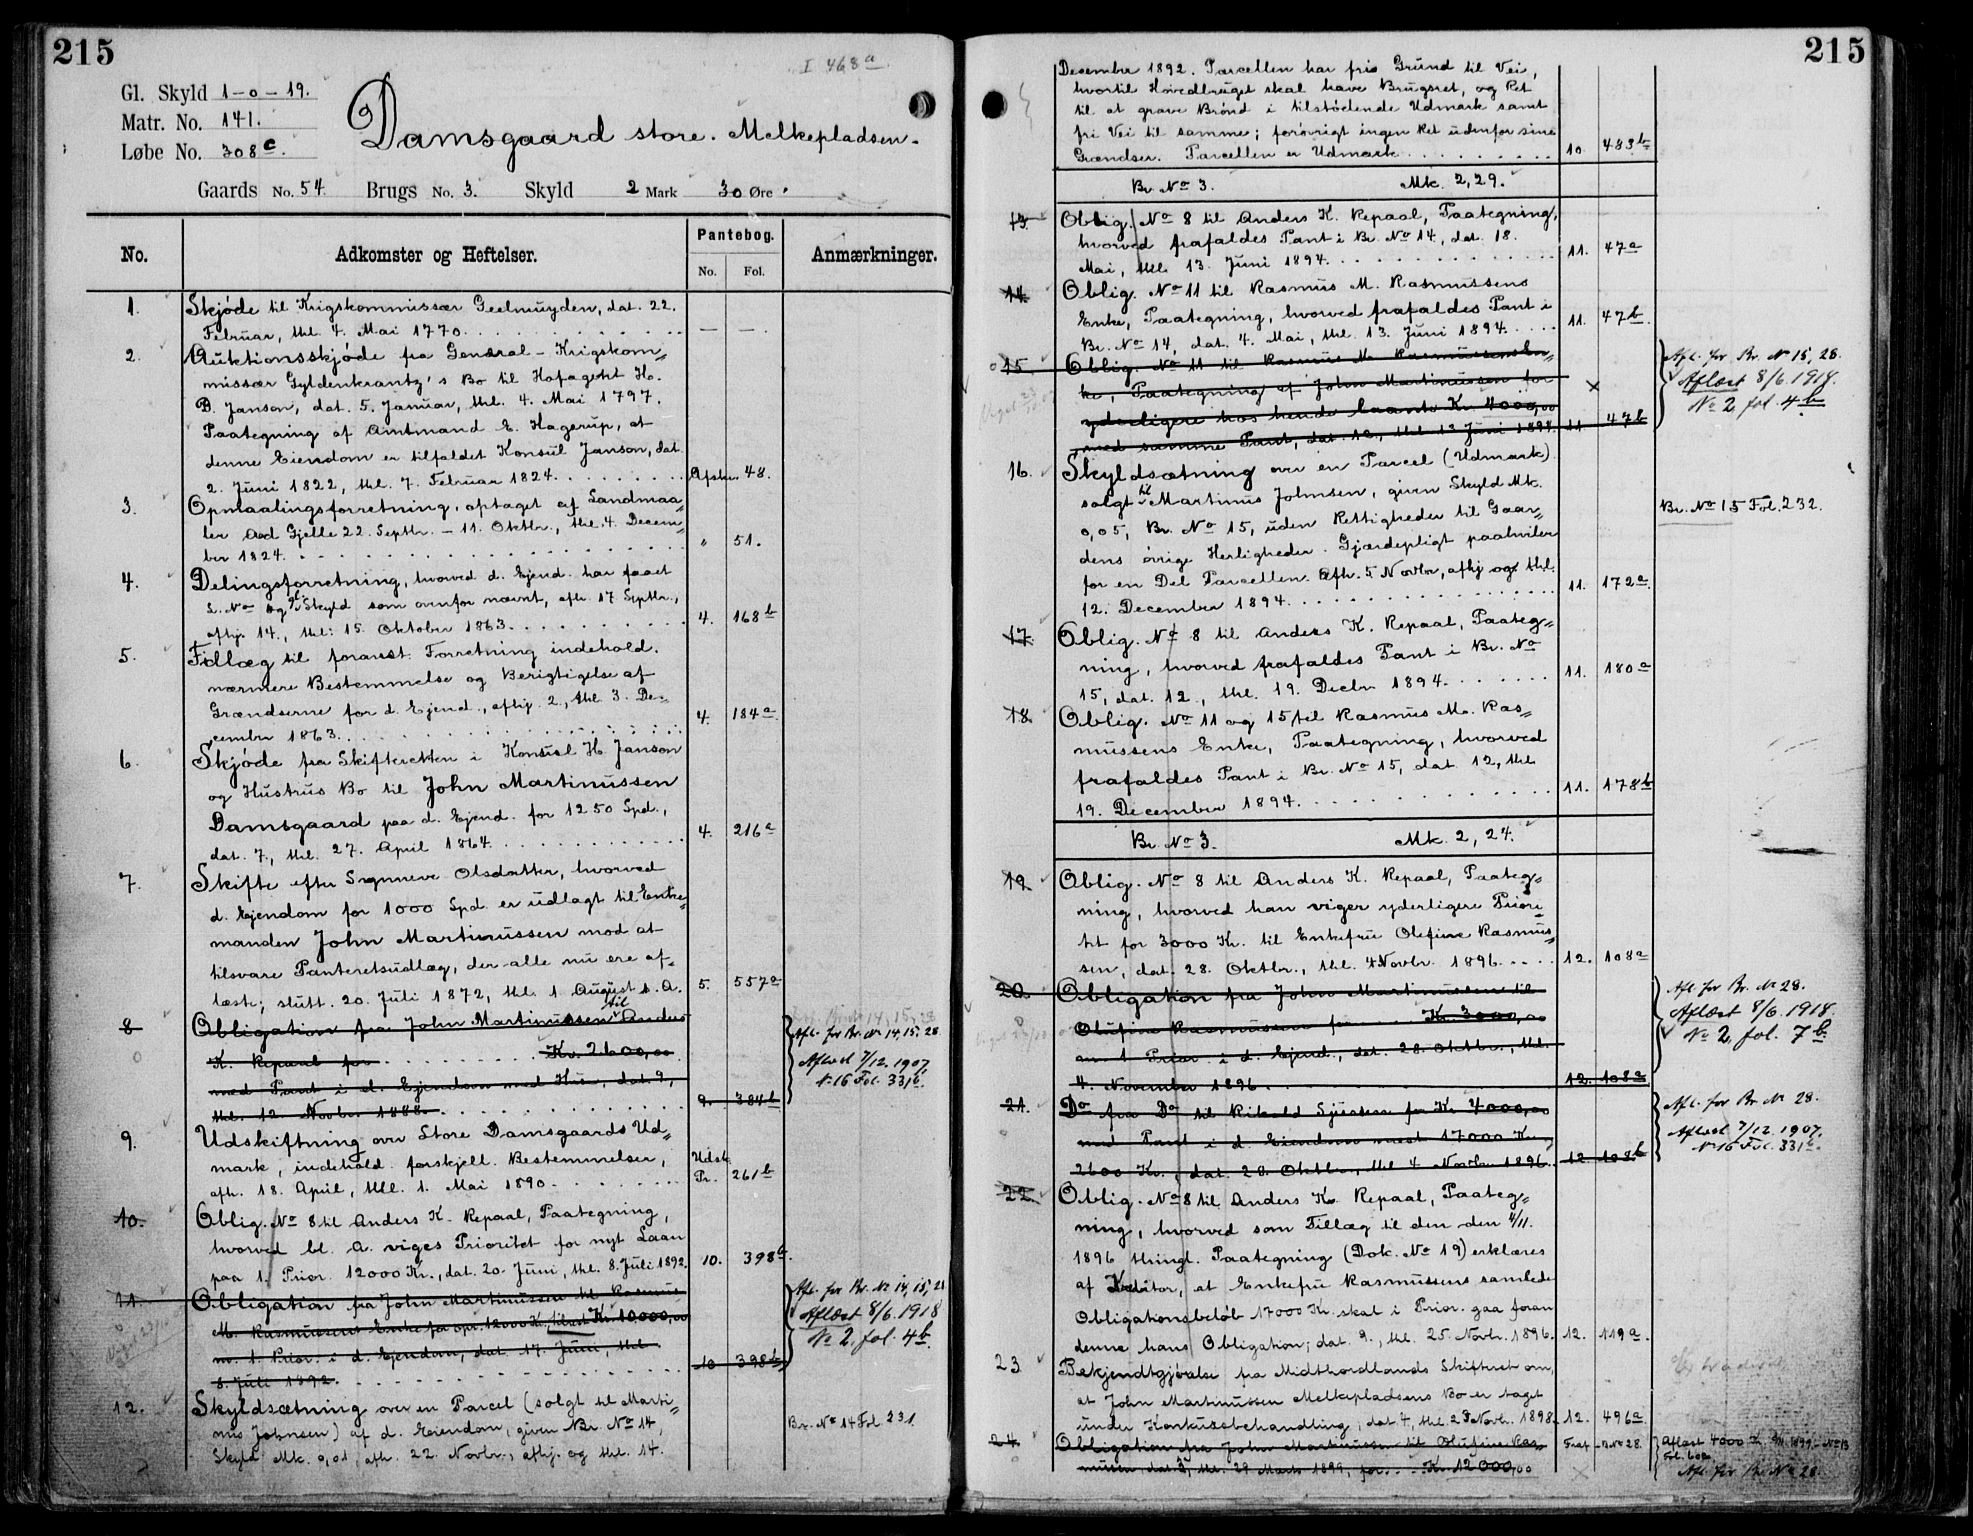 215
I 468 a
Gl. Skyld 1-0-19.
Matr. No. 141.
Løbe No. 308 c.
Damsgaard store. Melkepladsen.
Gaards No. 54. Brugs No. 3. Skyld 2 Mark 30 Øre.
No. Adkomster og Heftelser. Pantebog. No. Fol. Anmærkninger.
1. Skjøde til Krigskommissær Geelmuyden, dat. 22.
Februar, thl. 4. Mai 1770. — —.
2. Auktionsskjøde fra General-Krigskom=
missær Gyldenkrantz's Bo til Hofagent H.
D. Janson, dat. 5. Januar, thl. 4. Mai 1797.
Paategning af Amtmand E. Hagerup, at
denne Eiendom er tilfaldet Konsul Janson, dat.
2. Juni 1822, thl. 7. Februar 1824. Afskr. 48.
3. Opmaalingsforretning, optaget af Landmaa=
ler Aad Gjelle 22. Septbr. - 11. Oktbr., thl. 4. Decem=
ber 1824. " 51.
4. Delingsforretning, hvorved d. Ejend. har faaet
L. No og gl. Skyld som ovenfor nævnt, afh. 17 Septbr.,
afhj. 14., thl. 15. Oktober 1863. 4. 168 b
5. Tillæg til foranst. Forretning indehold.
nærmere Bestemmelse og Berigtigelse af
Grændserne for d. Ejend., afhj. 2., thl. 3. De=
cember 1863. 4. 184 a
6. Skjøde fra Skifteretten i Konsul H. Janson
og Hustrus Bo til John Martinussen
Damsgaard paa d. Ejend. for 1250 Spd.,
dat. 7., thl. 27. April 1864. 4. 216 a
7. Skifte efter Synneve Olsdatter, hvorved
d. Ejendom for 1000 Spd. er udlagt til Enke=
manden John Martinussen mod at
tilsvare Panteretsudlæg, der alle nu ere af=
læste; slutt. 20. Juli 1872, thl. 1 August s. A. 5. 557 a
8 Obligation fra John Martinussen til Anders
K. Repaal for Kr. 2600,00
med Pant i d. Ejendom med Hus, dat. 9.,
thl. 12. Novbr. 1888. 9. 384 b
Afl. for Br. No 14, 15, 28.
Aflæst 7/12. 1907.
No 16 Fol. 331 b.
9. Udskiftning over Store Damsgaards Ud=
mark, indehold. forskjell. Bestemmelser,
afh. 18. April, thl. 1. Mai 1890. Udsk. Pr. 261 b
10. Oblig. No 8 til Anders K. Repaal, Paategning,
hvorved bl. A. viges Prioritet for nyt Laan
paa 1. Prior. 12000 Kr., dat. 20. Juni, thl. 8. Juli 1892. 10. 398 b.
11. Obligation fra John Martinussen til Rasmus
M. Rasmussens Enke for opr. 12000 Kr., tilbast Kr. 10000,00
m. 1. Prior. i d. Ejendom, dat. 17. Juni, thl.
8. Juli 1892. 10 398 b
Afl. for Br. No 14, 15, 28
Aflæst 8/6. 1918
No 2. fol. 4 b.
12. Skyldsætning over en Parcel (solgt til Marti=
nus Johnsen) af d. Eiendom, given Br. No 14,
Skyld Mk. 0,01, afh. 22. Novbr., afhj. og thl. 14.
Br. No 14 Fol 231.
215
December 1892. Parcellen har fri Grund til Vei,
hvortil Hovedbruget skal have Brugsret, og Ret
til at grave Brønd i tilstødende Udmark samt
fri Vei til samme; forøvrigt ingen Ret udenfor sine
Grændser. Parcellen er Udmark. 10. 483 b
Br. No 3. Mk. 2,29.
13. Oblig. No 8 til Anders K. Repaal, Paategning,
hvorved frafaldes Pant i Br. No 14, dat. 18.
Mai, thl. 13. Juni 1894. 11. 47 a
14. Oblig. No 11 til Rasmus M. Rasmussens
Enke, Paategning, hvorved frafaldes Pant i
Br. No 14, dat. 4. Mai, thl. 13. Juni 1894. 11. 47 b.
15. Oblig. No 11 til Rasmus M. Rasmussens En=
ke, Paategning af John Martinussen for
yderligere hos hende laante Kr. 4000,00
med samme Pant, dat. 12., thl. 13 Juni 1894. 11. 47 b
Afl. for Br. No 15, 28.
Aflæst 8/6. 1918.
No 2 fol. 4 b
16. Skyldsætning over en Parcel (Udmark)
solgt til Martinus Johnsen, given Skyld Mk.
0,05, Br. No 15, uden Rettigheder til Gaar=
dens øvrige Herligheder. Gjærdepligt paahviler
for en Del Parcellen. Afh. 5 Novbr., afhj og thl.
12. December 1894. 11. 172 a.
Br. No 15 Fol. 232.
17. Oblig. No 8 til Anders K. Repaal, Paateg=
ning, hvorved frafaldes Pant i Br. No
15, dat. 12., thl. 19. Decbr 1894. 11. 180 a
18. Oblig. No 11 og 15 til Rasmus M. Ras=
mussens Enke, Paategning, hvorved
frafaldes Pant i Br. No 15, dat 12., thl
19. December 1894. 11. 178 b
Br. No 3. Mk. 2,24.
19. Oblig. No 8 til Anders K. Repaal, Paateg=
ning, hvorved han viger yderligere Priori=
tet for 3000 Kr. til Enkefru Olufine Rasmus=
sen, dat. 28. Oktbr., thl. 4. Novbr. 1896. 12. 108 a
20. Obligation fra John Martinussen til
Olufine Rasmussen for Kr. 3000,00
m. 1 Prior. i d. Ejend., dat. 28. Oktbr., thl.
4. November 1896. 12. 108 a
Afl. for Br. No 28.
Aflæst 8/6. 1918.
No 2. fol. 7 b.
21. Do fra Do til Rikold Sjursen for Kr. 4000,00
med Pant i d. Eiendom næst 17000 Kr. og
2600 Kr., dat. 28. Oktbr., thl 4. Novbr. 1896. 12. 108 b
Afl. for Br. No 28.
Aflæst 7/12. 1907.
No 16 Fol. 331 b.
22. Oblig. No 8 til Anders K. Repaal, Paateg=
ning, hvorved som Tillæg til den den 4/11.
1896 thingl. Paategning (Dok. No 19) erklæres
af Kreditor, at Enkefru Rasmussens samlede
Obligationsbeløb 17000 Kr. skal i Prior. gaa foran
denne hans Obligation; dat. 9., thl. 25. Novbr. 1896. 12. 119 a.
23 Bekjendtgjørelse fra Midthordlands Skifteret om,
at John Martinussen Melkepladsens Bo er taget
under Konkursbehandling, dat. 4., thl. 23 Novbr. 1898. 12. 496 a
24. Obligation fra John Martinussen til Olufine Ras=
mussen, dat. 3, thl. 29 Marts 1899, for Kr. 12000,00
Fraf. Br No 28.
Aflæst 4000 K. 1899 - No 13
Fol. 60 a
Afl. for Br. No 28.